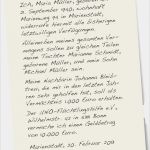 ICH, Maria Müller, geboren am
2. September 1940, wohnhaft
Marienweg 11 in Marienstadt,
widerrufe hiermit alle bisherigen
letztwilligen Verfügungen.
Alleinerben meines gesamten Ver-
mögens sollen zu gleichen Teilen
meine Tochter Marianne Schmidt,
geborene Müller, und mein Sohn
Michael Müller sein.
Meine Nachbarin Johanna Bieder-
, die mir in den letzten Jahren
sehr geholfen hat, soll als
Vermächtnis 1.000 Euro erhalten.
Der UNO-Flüchtlingshilfe e.V.,
Wilhelmstr. 42 in 53111 Bonn
vermache ich einen Geldbetrag
von 10.000 Euro.
Marienstadt, 10. Februar 2011